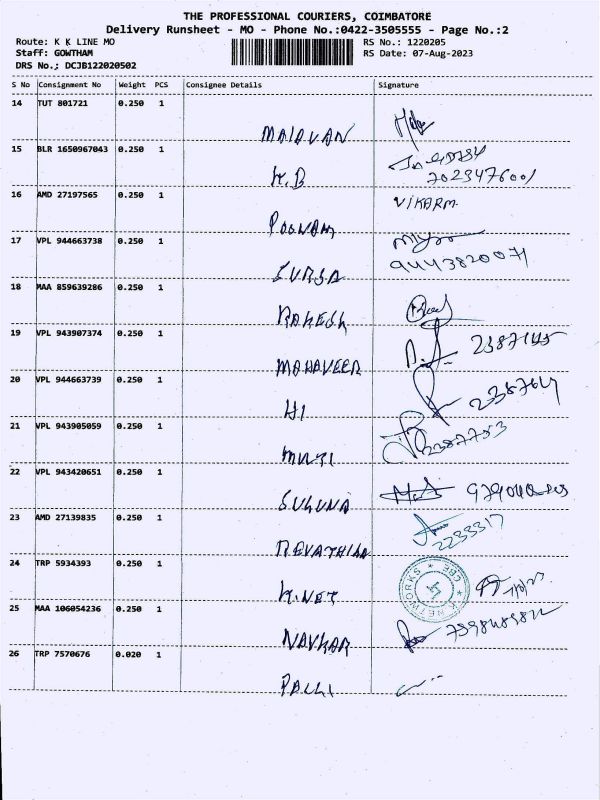 THE PROFESSIONAL COURIERS, COIMBATORE
Delivery Runsheet - MO - Phone No.:0422-3505555 - Page No.:2
Route: K K LINE MO RS No.: 1220205
Staff: GOWTHAM RS Date: 07-Aug-2023
DRS No.; DCJB122020502
S No Consignment No Weight PCS Consignee Details Signature
14 TUT 801721 0.250 1
MALAVAN
15 BLR 1650967043 0.250 1
K.B 7023476001
16 AMD 27197565 0.250 1 VIKARM
POONAM
17 VPL 944663738 0.250 1
SURSA 9443820071
18 MAA 859639286 0.250 1
RAKESH
19 VPL 943907374 0.250 1 2387145
MAHAVEER
20 VPL 944663739 0.250 1
HI
21 VPL 943905059 0.250 1 2387753
MUTI
22 VPL 943420651 0.250 1
SUGUNA
23 AMD 27139835 0.250 1 2233317
REVATHI
24 TRP 5934393 0.250 1
K.NET K NETWORKS * CBE *
25 MAA 106054236 0.250 1
NAVKAR
26 TRP 7570676 0.020 1
PALLI